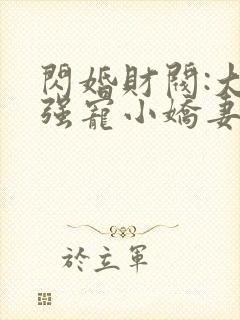 閃婚財閥:大
强寵小嬌妻
於立軍